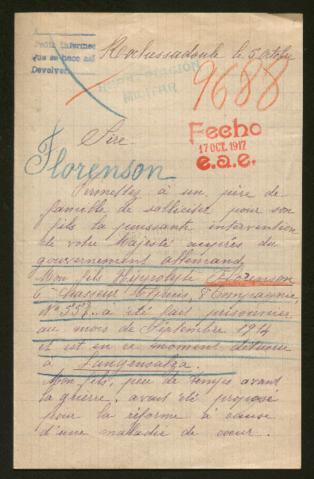 Rochessadoule le 5 octobre
9688
Fecho
17 OCT. 1917
e.a.e.
Sire
Florenson
Permettez à un père de
famille de solliciter pour son
fils la puissante intervention
de votre Majesté auprès du
gouvernement allemand,
Mon fils Hyppolyte Florenson
6e Chasseur Alpins, 8e Compagnie,
No 357. a été fait prisonnier
au mois de Septembre 1914
et est en ce moment détenu
à Langensalza.
Mon fils, peu de temps avant
la guerre, avait été proposé
pour la réforme à cause
d'une maladie de coeur.